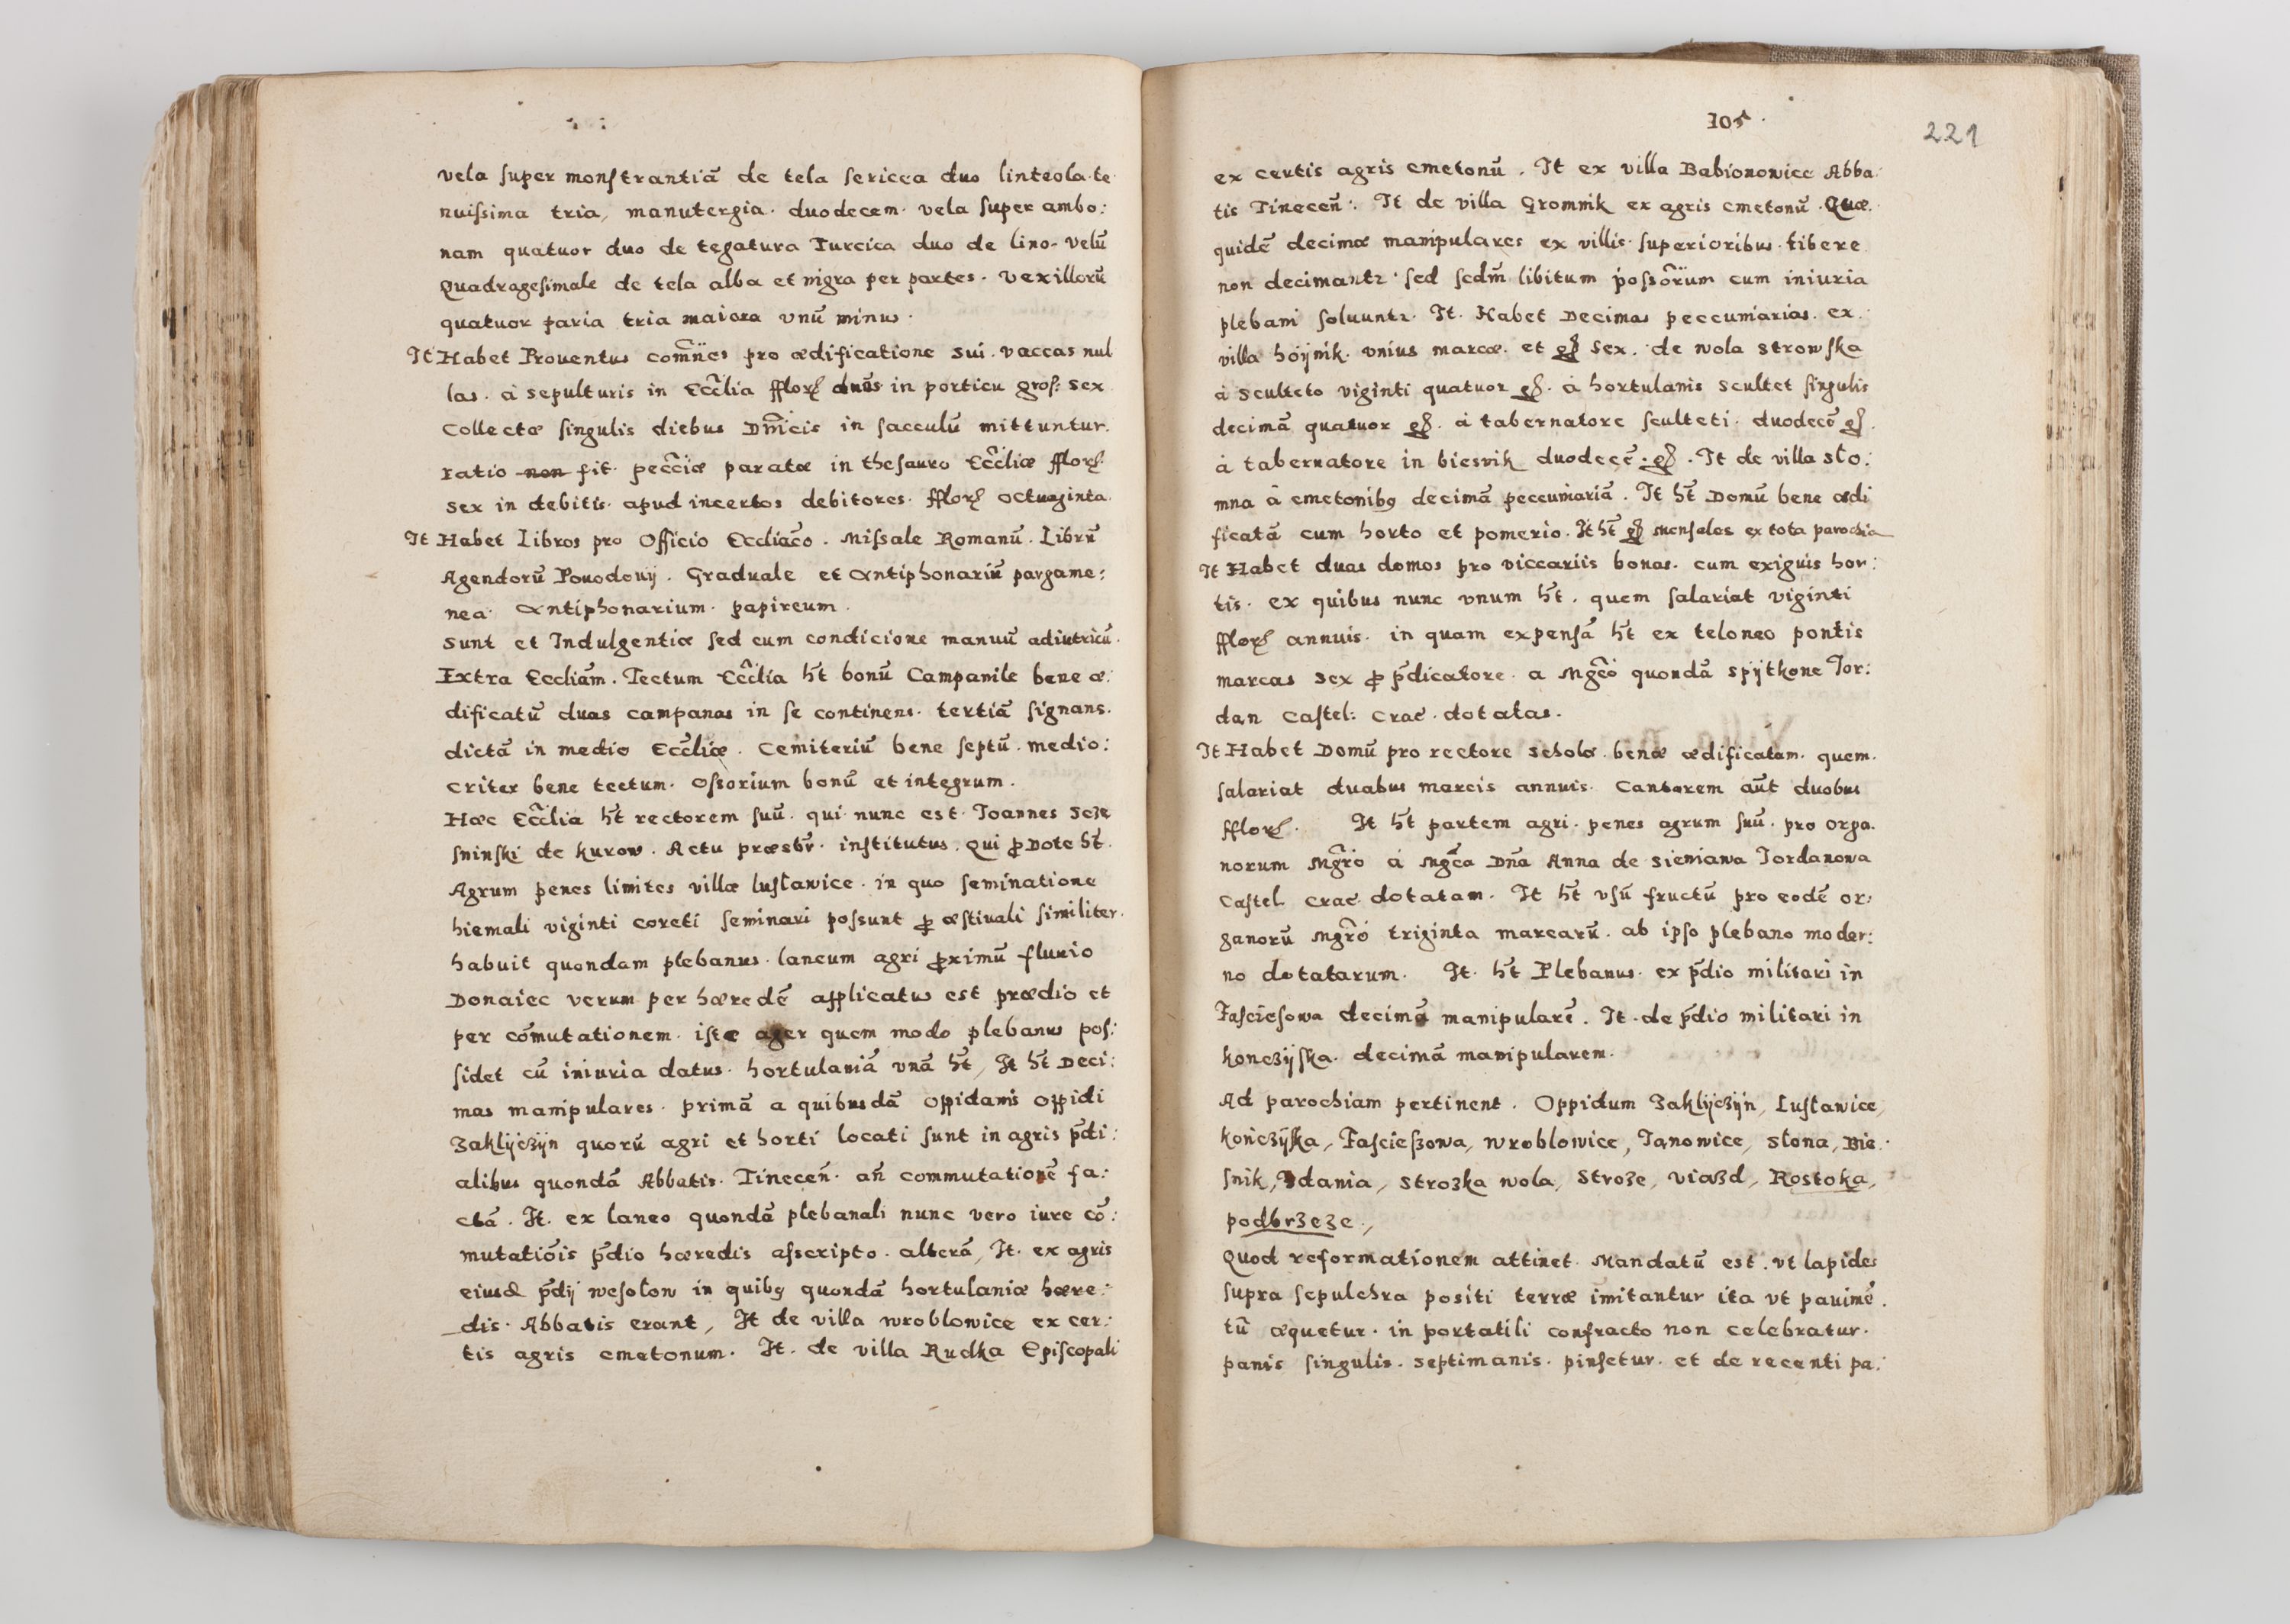 vela super monstrantiā de tela sericea duo linteola te
nuissima tria, manutergia. duodecem. vela super ambo:
nam quatuor duo de tegatura Turcica duo de lino. velū
Quadragesimale de tela alba et nigra per partes. vexillorū
quatuor paria tria maiora vnū minus.
It Habet Prouentus com̄nes pro ædificatione sui. vaccas nul
las. à sepulturis in Eccl̄ia fflor duos in porticu gros: sex
Collectæ singulis diebus Dm̄icis in sacculū mittuntur.
ratio non fit. pecc̄iæ paratæ in thesauro Eccl̄iæ fflor
sex in debitis. apud incertos debitores. fflor octuaginta.
It Habet Libros pro Officio Eccliāco. Missale Romanū. Librū
Agendorū Pouodouij. Graduale et Antiphonariū pargame:
nea. Antiphonarium. papireum.
Sunt et Indulgentiæ sed cum condicione manuū adiutricū.
Extra Eccliām. Tectum Eccl̄ia h̄t bonū Campanile bene æ:
dificatū duas campanas in se continens. tertiā signans.
dictā in medio Eccl̄iæ. Cemiteriū bene septū. medio:
criter bene tectum. Ossorium bonū et integrum.
Hæc Eccl̄ia h̄t rectorem suū. qui nunc est Joannes Scze
sninski de kurow. Actu præsbr̄. institutus. Qui ꝓ Dote h̄t.
Agrum penes limites villæ lustawice. in quo seminatione
hiemali viginti coreti seminari possunt ꝓ æstiuali similiter.
habuit quondam plebanus. laneum agri ꝓximū fluuio
Donaiec verum per hæredē applicatus est prædio et
per cōmutationem. iste ager quem modo plebanus pos:
sidet cū iniuria datus. hortulaniā vnā h̄t, It h̄t Deci:
mas manipulares. primā a quibusdā oppidanis oppidi
Zaklÿczÿn quorū agri et horti locati sunt in agris p̄di:
alibus quondā Abbatis. Tinecen̄. an̄ commutationē fa:
ctā. It. ex laneo quondā plebanali nunc vero iure cō:
mutatiōis p̄dio hæredis asscripto. alterā, It. ex agris
eiusd p̄dij wesolow in quibꝫ quondā hortulaniæ hære:
dis. Abbatis erant, It de villa wroblowice ex cer:
tis agris cmetonum. It. de villa Rudka Episcopali
105.
221
ex certis agris cmetonū. It ex villa Babionowice Abba:
tis Tinecen̄. It de villa Gromnik ex agris cmetonū. Quæ.
quidē decimæ manipulares ex villis superioribus. libere
non decimantr. sed sedm̄ libitum possōrum cum iniuria
plebani soluuntr. It. Habet Decimas peccuniarias. ex.
villa hoÿnik. vnius marcæ. et gꝭ sex. de wola strowska
à sculteto viginti quatuor gꝭ. à hortulanis scultet singulis
decimā quatuor gꝭ. à tabernatore sculteti. duodecē gꝭ.
à tabernatore in biesnik duodecē. gꝭ. It de villa sto:
mna à cmetonibꝫ decimā peccuniariā. It h̄t Domū bene ædi
ficatā cum horto et pomerio. It h̄t gꝭ mensales ex tota parochia
It Habet duas domos pro viccariis bonas. cum exiguis hor:
tis. ex quibus nunc vnum h̄t. quem salariat viginti
fflor annuis. in quam expensā h̄t ex teloneo pontis
marcas sex ꝓ p̄dicatore. a Mgc̄o quondā spÿtkone Jor:
dan Castel: Crac. dotatas.
It Habet Domū pro rectore scholæ. benæ ædificatam. quem.
salariat duabus marcis annuis. Cantorem aūt duobus
fflor. It h̄t partem agri. penes agrum suū. pro orga.
norum Mgrō à Mgc̄a Dn̄a Anna de sieniawa Jordanowa
Castel. crac. dotatam. It h̄t vsū fructū pro eodē or:
ganorū Mgrō triginta marcarū. ab ipso plebano moder:
no dotatarum. It. h̄t Plebanus. ex p̄dio militari in
Fasciesowa decimā manipularē. It. de p̄dio militari in
konczÿska. decimā manipularem.
Ad parochiam pertinent. Oppidum Zaklÿczÿn, Lustawice,
kończÿska, Fascieszowa, wroblowice, Janowice, stona, Bie.
snik, Zdania, strozka wola, stroze, viazd, Rostoka,
podbrzeze.,
Quod reformationem attinet. Mandatū est. vt lapides
supra sepulchra positi terræ imitantur ita vt pauimē.
tū æquetur. in portatili confracto non celebratur.
panis singulis. septimanis. pinsetur. et de recenti pa: